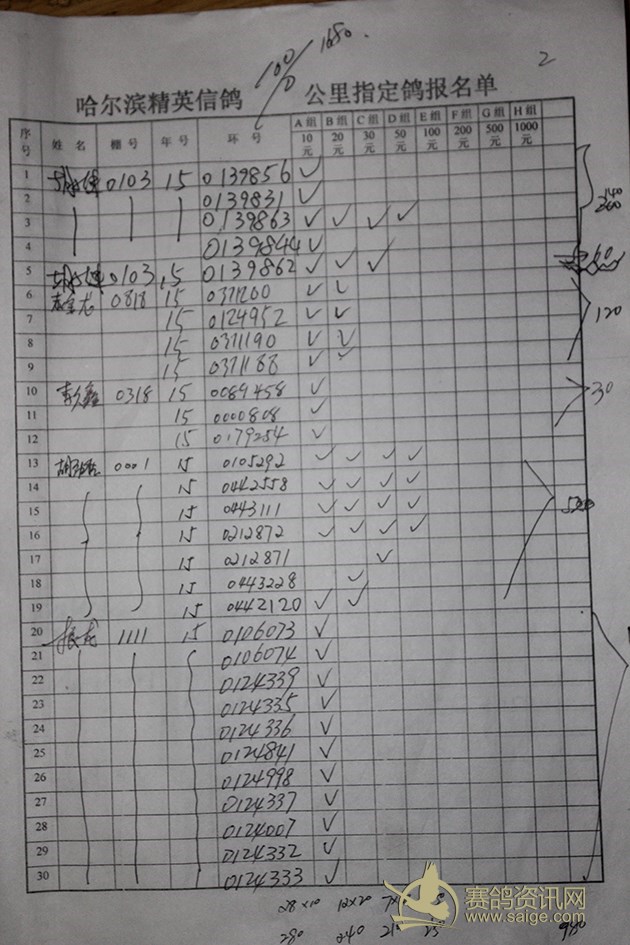 100/0 1680. 2
哈尔滨精英信鸽 公里指定鸽报名单
序号 姓名 棚号 年号 环号 A组 10元 B组 20元 C组 30元 D组 50元 E组 100元 F组 200元 G组 500元 H组 1000元
1 0103 15 0139856 ✓
2 0139831 ✓
3 0139863 ✓ ✓ ✓ ✓
4 0139844 ✓
5 0103 15 0139862 ✓ ✓ ✓ 60
6 0818 15 0371260 ✓ ✓
7 15 0124952 ✓ ✓ 120
8 15 0371190 ✓ ✓
9 15 0371188 ✓ ✓
10 0318 15 0089458 ✓ 30
11 15 0000808 ✓
12 15 0179254 ✓
13 0001 15 0105292 ✓ ✓ ✓ ✓
14 15 0442558 ✓ ✓ ✓ ✓
15 15 0443111 ✓ ✓ ✓ ✓
16 15 0212872 ✓ ✓ ✓ ✓
17 15 0212871 ✓
18 15 0443228 ✓
19 15 0442120 ✓ ✓
20 1111 15 0106073 ✓
21 0106074 ✓
22 0124339 ✓
23 0124335 ✓
24 0124336 ✓
25 0124841 ✓
26 0124998 ✓
27 0124337 ✓
28 0124007 ✓
29 0124332 ✓
30 0124333 ✓
28×10 12×20
280 240
赛鸽资讯网
www.saige.com